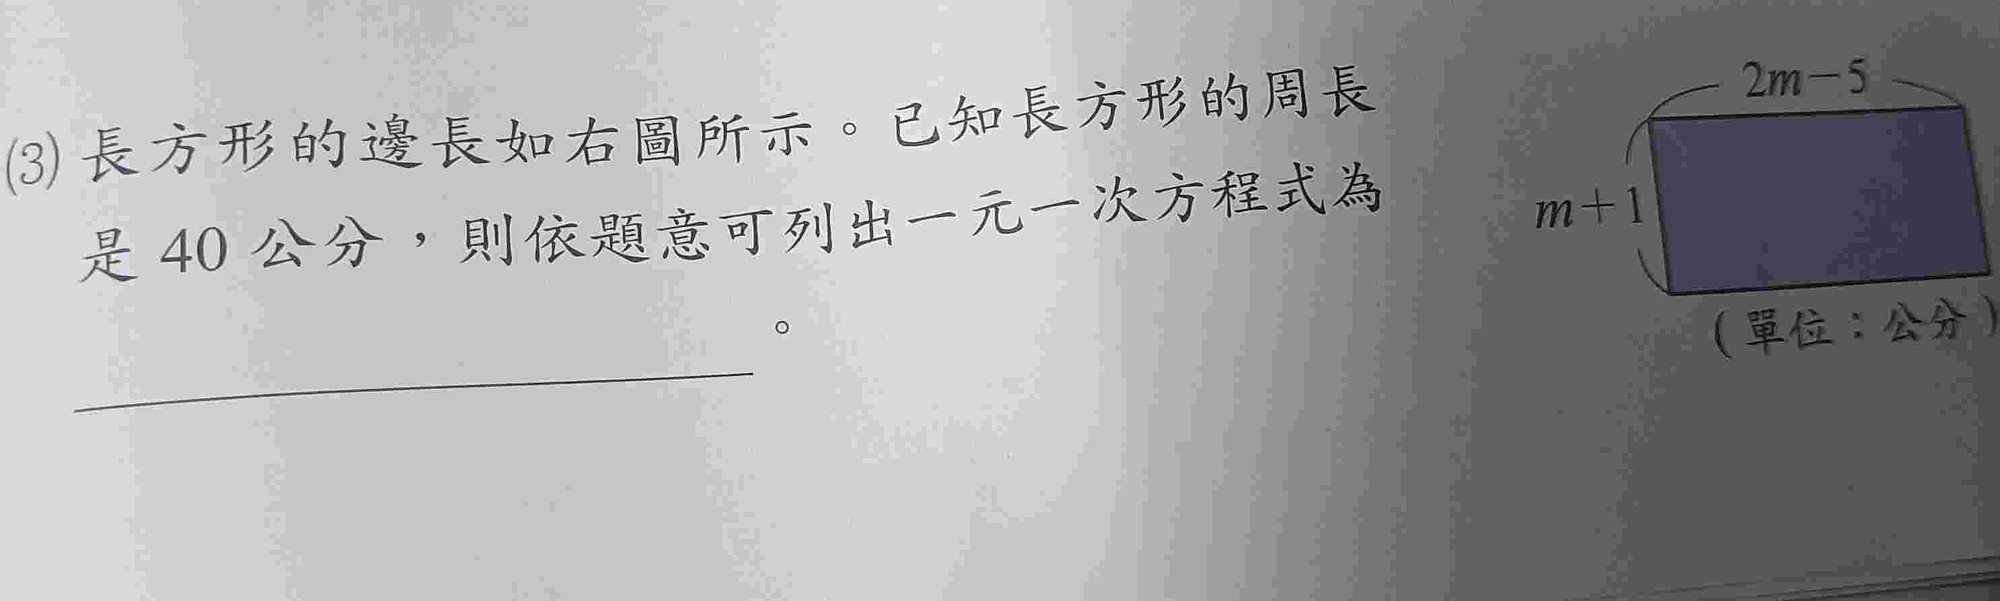 (3) 長方形的邊長如右圖所示。已知長方形的周長
是 40 公分，則依題意可列出一元一次方程式為
。
2m－5
m＋1
（單位：公分）